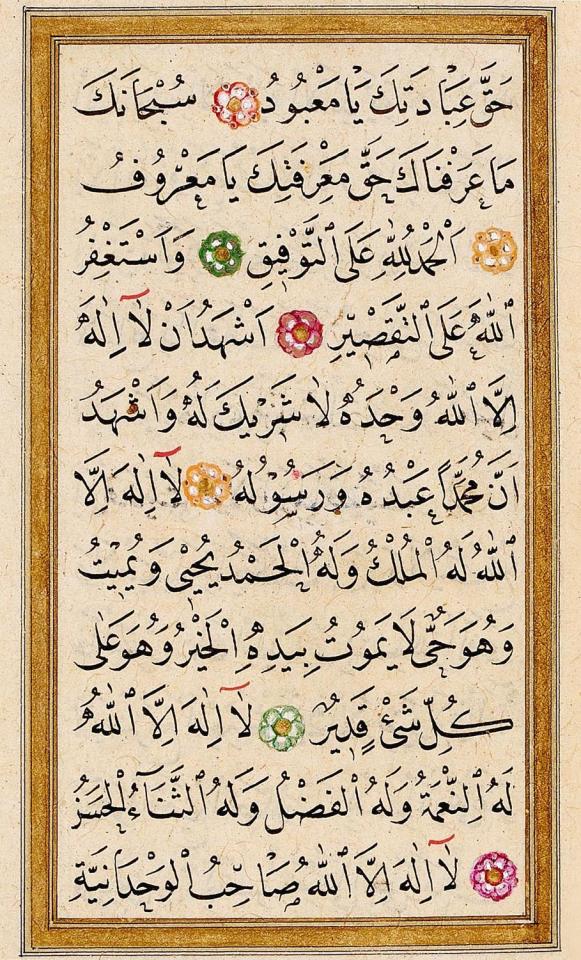 حَقَّ عِبَادَتِكَ يَا مَعْبُودُ سُبْحَانَكَ
مَا عَرَفْنَاكَ حَقَّ مَعْرِفَتِكَ يَا مَعْرُوفُ
اَلْحَمْدُ لِلّٰهِ عَلَى التَّوْفِيقِ وَاَسْتَغْفِرُ
اللّٰهَ عَلَى التَّقْصِيْرِ اَشْهَدُ اَنْ لَآ اِلٰهَ
اِلَّا اللّٰهُ وَحْدَهُ لَا شَرِيْكَ لَهُ وَاَشْهَدُ
اَنَّ مُحَمَّدًا عَبْدُهُ وَرَسُوْلُهُ لَآ اِلٰهَ اِلَّا
اللّٰهُ لَهُ الْمُلْكُ وَلَهُ الْحَمْدُ يُحْيِى وَيُمِيْتُ
وَهُوَ حَىٌّ لَا يَمُوْتُ بِيَدِهِ الْخَيْرُ وَهُوَ عَلٰى
كُلِّ شَىْءٍ قَدِيْرٌ لَآ اِلٰهَ اِلَّا اللّٰهُ
لَهُ النِّعْمَةُ وَلَهُ الْفَضْلُ وَلَهُ الثَّنَآءُ الْحَسَنُ
لَآ اِلٰهَ اِلَّا اللّٰهُ صَاحِبُ الْوَحْدَانِيَّةِ